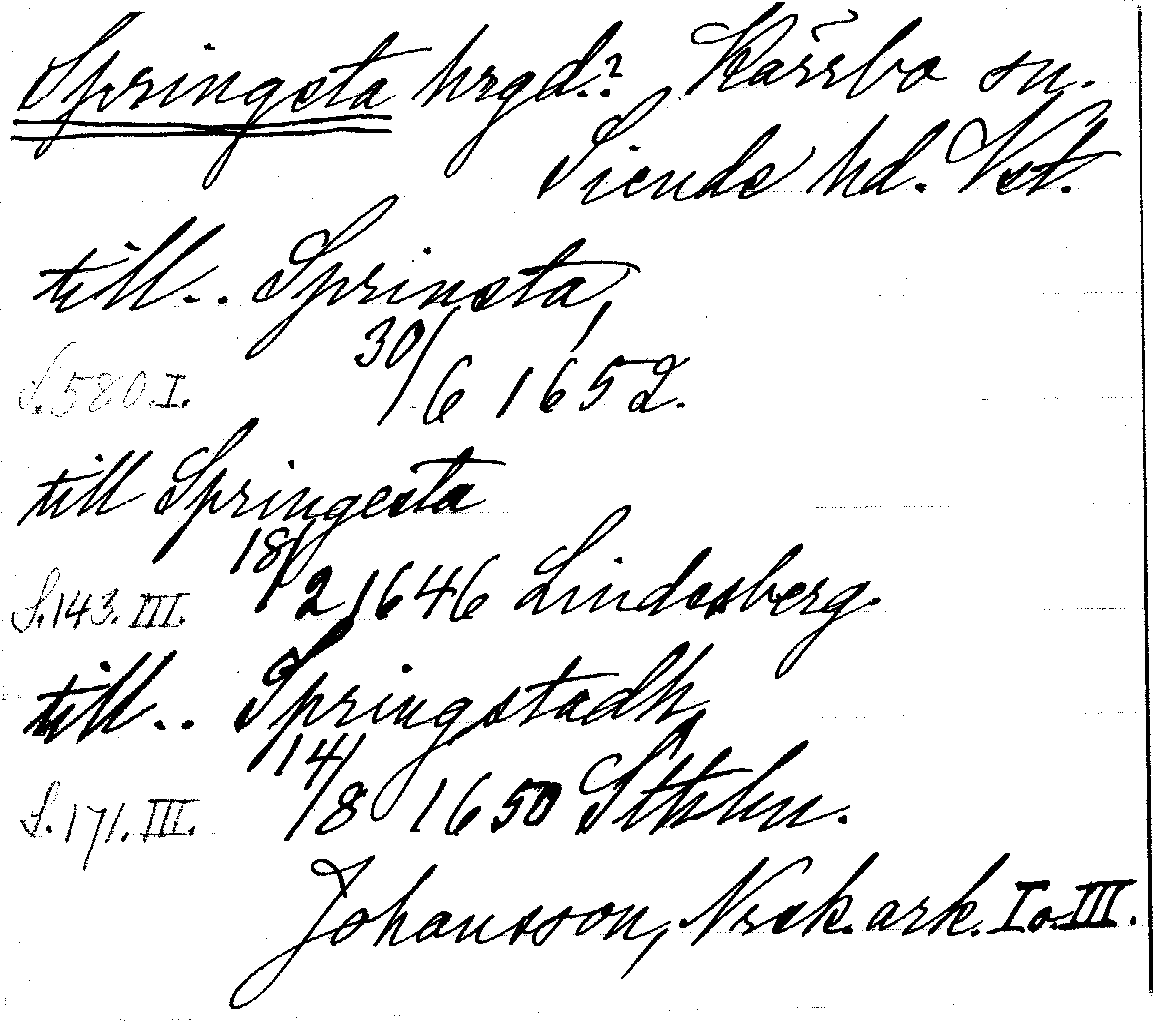 Springsta hrgd.? Kärrbo sn.
Siende hd. Vst.
till.. Sprinsta,
S. 580. I. 30/6 1652.
till Springesta
S. 143. III. 18/2 1646 Lindesberg.
till.. Springstadh,
S. 171. III. 14/8 1650 Sthlm.
Johansson, Nrsk. ark. I o. III.